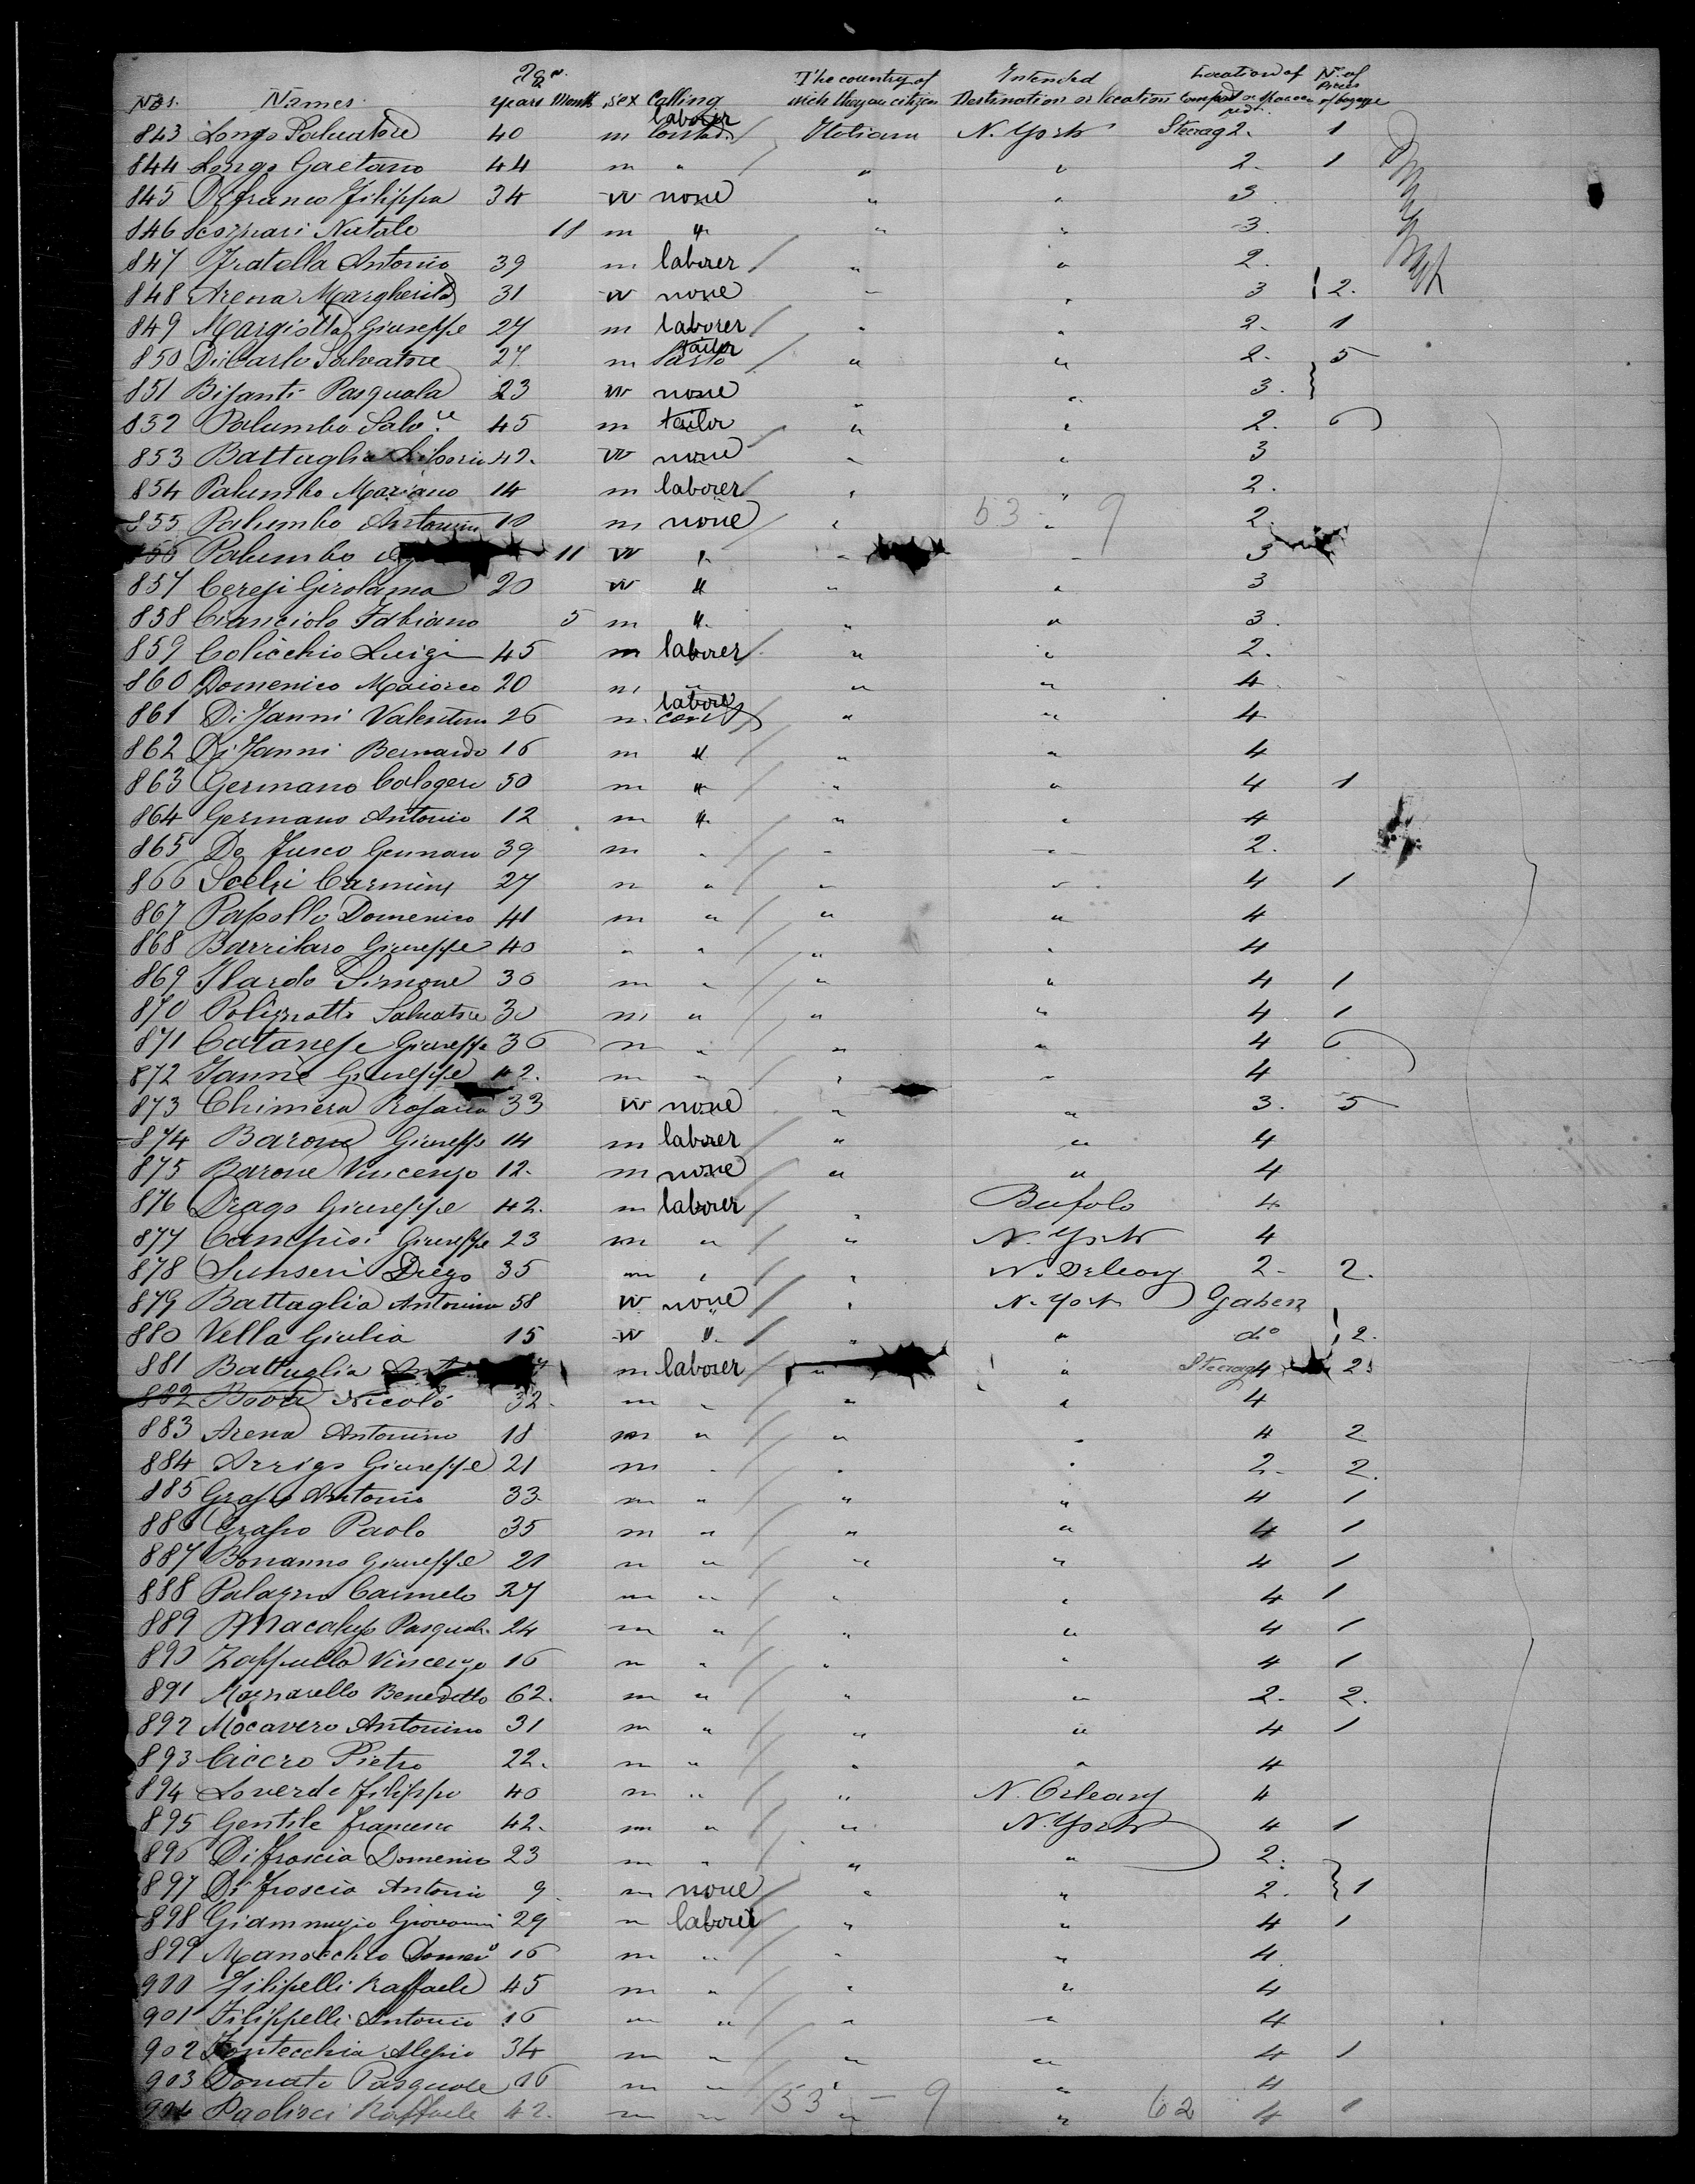 Nos. Names. Age Years Month Sex Calling The country of wich they are citizen Intended Destination or location Location of Compart or Spaces Nº of Pieces of bagage
843 Longo Salvatore 40 m laborer / Italiana N. York Steerag 2. 1
844 Longo Gaetano 44 m " / " " 2. 1
845 Difranco Filippa 34 w none " " 3
846 Natale 11 m " " " 3.
847 Fratella Antonio 39 m laborer / " " 2.
848 Arena Margherita 31 w none " " 3 } 2.
849 Margiotta Giuseppe 27 m laborer / " " 2. 1
850 DiCarlo Salvatore 27. m tailor Sarto / " " 2. 5
851 Bisanti Pasquala 23 w none " " 3. }
852 Palumbo Salv.re 45 m tailor / " " 2. 6
853 Battaglia Liboria 42. w none " " 3
854 Palumbo Mariano 14 m laborer / " " 2.
855 Palumbo Antonin 10 m none / " 53 " 9 2.
856 Palumbo 11 w " " " 3
857 Cerefi Girolama 20 w " " " 3
858 Cianciolo Fabiano 5 m " " " 3.
859 Colicchio Luigi 45 m laborer / " " 2.
860 Domenico Maiorco 20 m " " " 4
861 Di Janni Valentino 26 m laborer / " " 4
862 Di Janni Bernardo 16 m " / " " 4
863 Germano Calogero 50 m " / " " 4 1
864 Germano Antonio 12 m " / " " 4
865 De Fusco Gennaro 39 m " / " " 2.
866 Scelzi Carmine 27 m " / " " 4 1
867 Papollo Domenico 41 m " / " " 4
868 Barrilaro Giuseppe 40 " " / " " 4
869 Ilardo Simone 30 m " / " " 4 1
870 Polizzotti Salvatore 30 m " / " " 4 1
871 Catanese Giuseppe 36 m " / " " 4 6
872 Janne Giuseppe 42. m " / " " 4
873 Chimera Rosaria 33 w none " " 3. 5
874 Barone Giuseppe 14 m laborer " " 4
875 Barone Vincenzo 12. m none " " 4
876 Drago Giuseppe 42. m laborer " Bufolo 4
877 Campisi Giuseppe 23 m " / " N. York 4
878 Sunseri Diego 35 m " / " N. Orleans 2. 2.
879 Battaglia Antonina 58 w none / " N. York Gaben
880 Vella Giulia 15 w " / " " do } 2.
881 Battaglia m laborer / " " Steerag 4 2
882 Bova Nicoló 32. m " / " " 4
883 Arena Antonino 18 m " / " " 4 2
884 Arrigo Giuseppe 21 m " / " " 2. 2.
885 Grasso Antonio 33. m " / " " 4 1
886 Grasso Paolo 35 m " / " " 4 1
887 Bonanno Giuseppe 21 m " / " " 4 1
888 Palazzo Carmelo 27 m " / " " 4 1
889 Macaluso Pasquale 24 m " / " " 4 1
890 Zappulla Vincenzo 16 m " / " " 4 1
891 Magnarello Benedetto 62. m " / " " 2. 2.
892 Mocavero Antonino 31 m " / " " 4 1
893 Cicero Pietro 22. m " / " " 4
894 Loverde Filippo 40 m " / " N. Orleans 4
895 Gentile Francesco 42. m " / " N. York 4 1
896 Difroscia Domenico 23 m " / " " 2.
897 Di Froscia Antonio 9. m none " " 2. } 1
898 Giovanni 29 m laborer / " " 4 1
899 Manocchio Domen.o 16 m " / " " 4
900 Filipelli Raffaele 45 m " / " " 4
901 Filippelli Antonio 16 m " / " " 4
902 Fontecchia Alesio 34 m " / " " 4 1
903 Donato Pasquale 16 m " / " " 4
904 Paolisci Raffaele 42. m " 53 " – 9 " 62 4 1